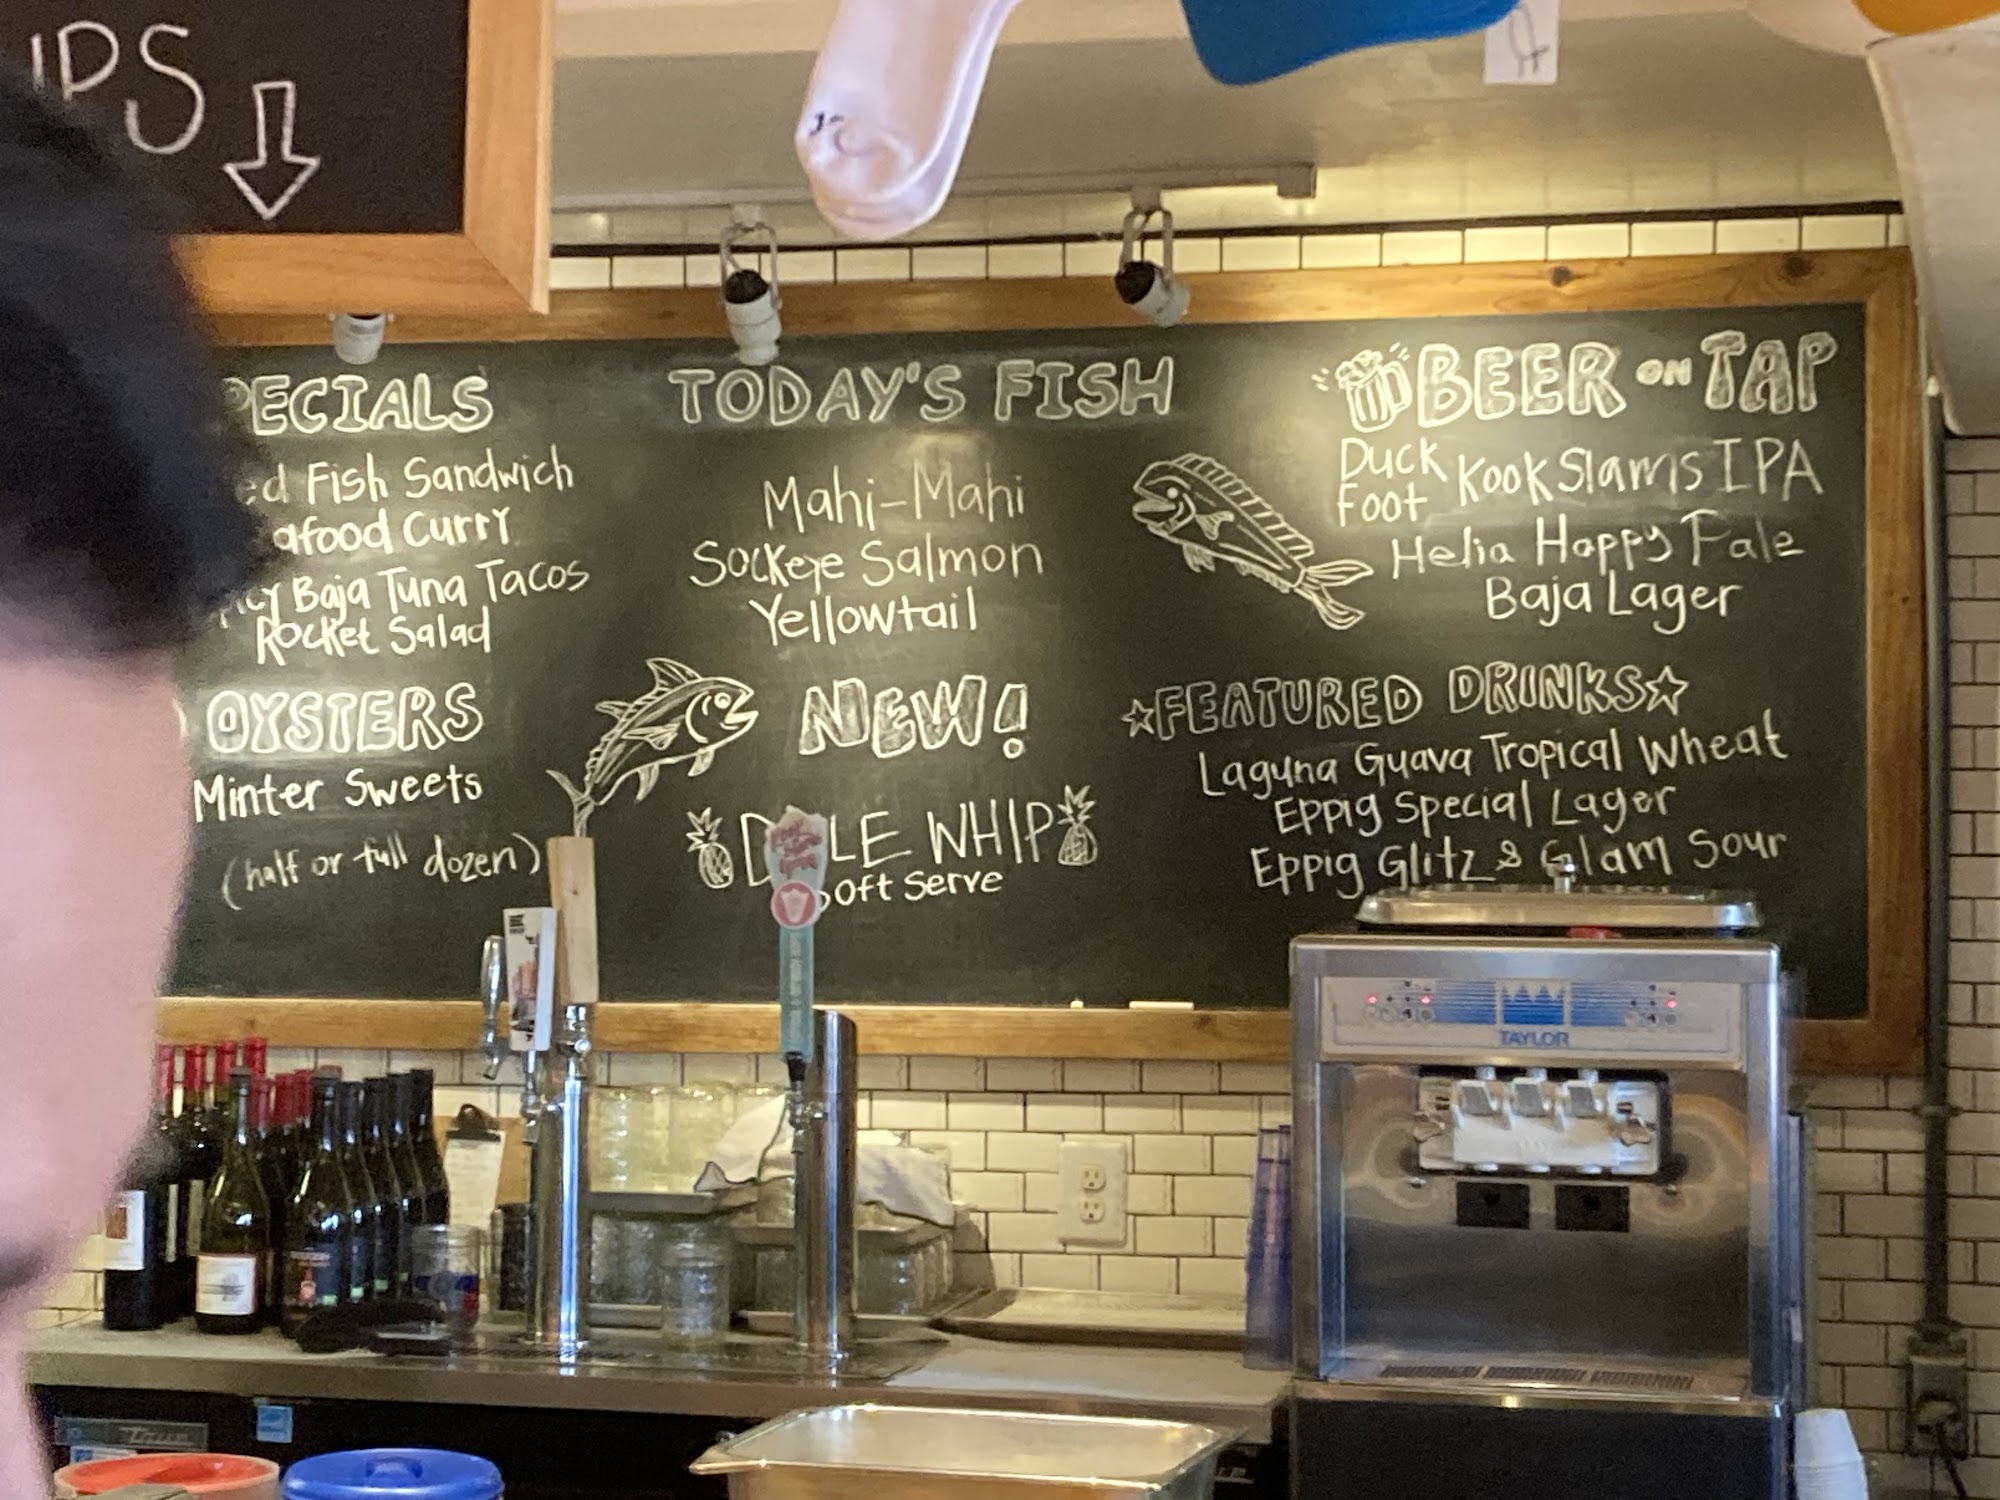 IPS
PECIALS
ed Fish Sandwich
afood Curry
icy Baja Tuna Tacos
Rocket Salad
OYSTERS
Minter Sweets
(half or full dozen)
TODAY'S FISH
Mahi-Mahi
Sockeye Salmon
Yellowtail
NEW!
D LE WHIP
oft Serve
BEER ON TAP
Duck Foot Kook Slams IPA
Helia Happy Pale
Baja Lager
☆FEATURED DRINKS☆
Laguna Guava Tropical Wheat
Eppig Special Lager
Eppig Glitz & Glam Sour
TAYLOR